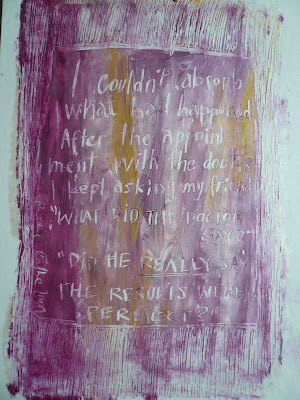 I couldn't absorb
what had happened
After the appoint
ment with the doctor
I kept asking my friend
"WHAT DID THE DOCTOR
SAY?"
"DID HE REALLY SAY
THE RESULTS WERE
PERFECT?"